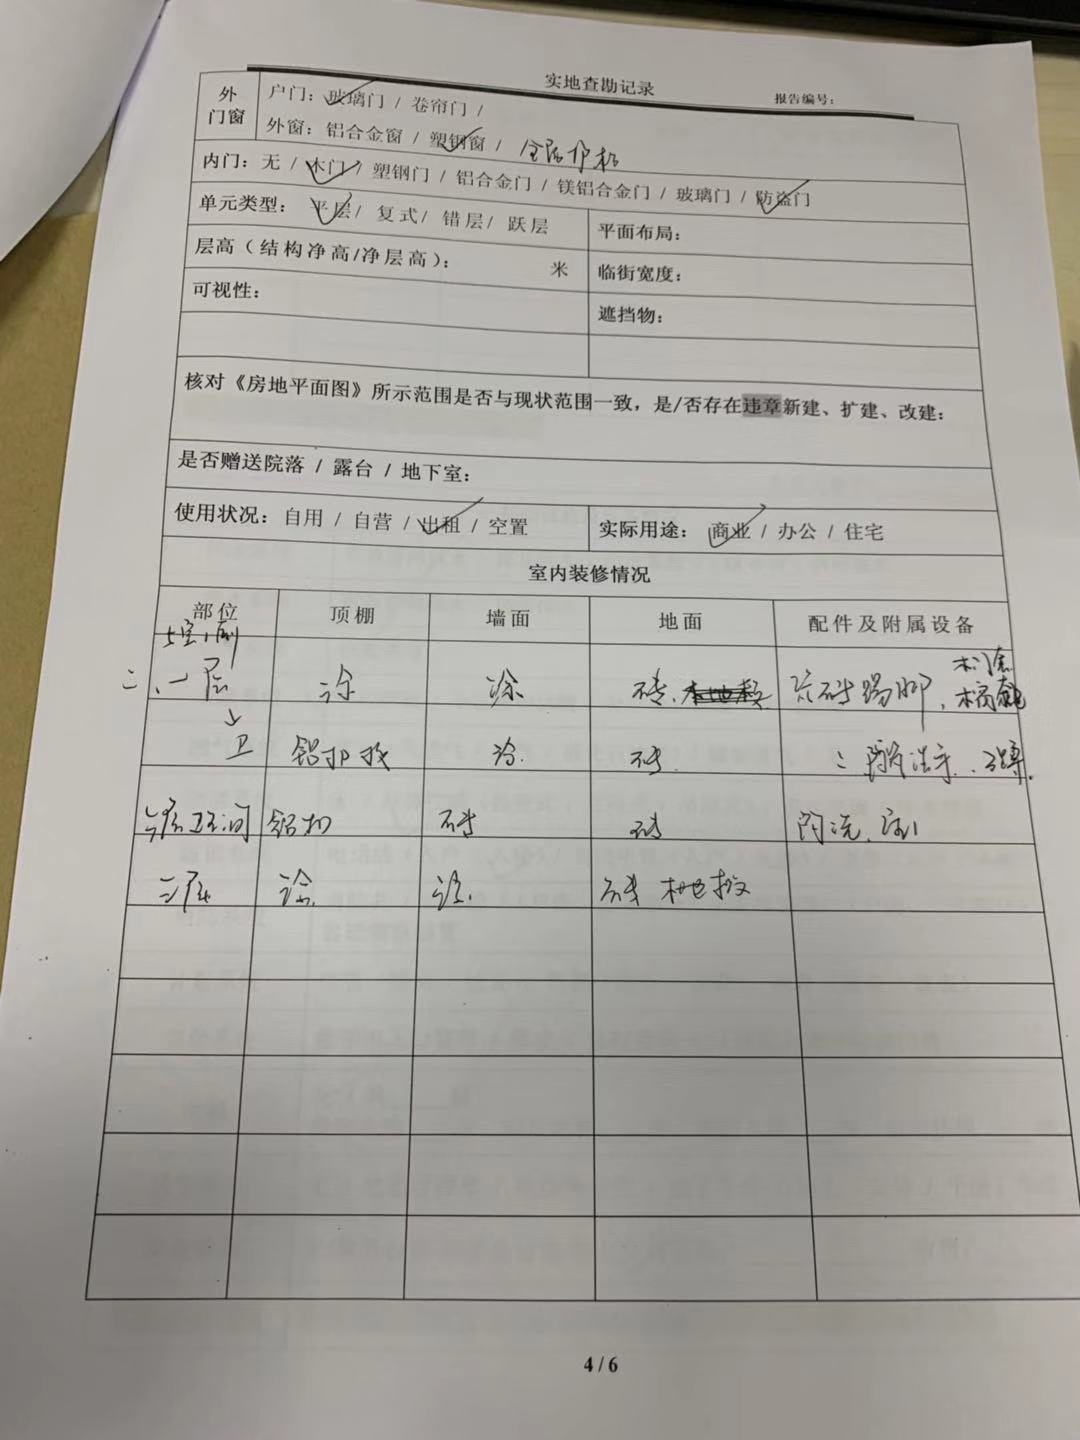 实地查勘记录
报告编号：
外门窗
户门：玻璃门 / 卷帘门 /
外窗：铝合金窗 / 塑钢窗 /
内门：无 / 木门 / 塑钢门 / 铝合金门 / 镁铝合金门 / 玻璃门 / 防盗门
单元类型： 平层/ 复式/ 错层/ 跃层
平面布局：
层高（结构净高/净层高）： 米
临街宽度：
可视性：
遮挡物：
核对《房地平面图》所示范围是否与现状范围一致，是/否存在违章新建、扩建、改建：
是否赠送院落 / 露台 / 地下室：
使用状况：自用 / 自营 / 出租 / 空置
实际用途： 商业 / 办公 / 住宅
室内装修情况
部位 顶棚 墙面 地面 配件及附属设备
二、一层 涂 涂 砖、木地板
卫 铝扣板 涂 砖
卫生间 铝扣 砖 砖
二层 涂 涂 砖 木地板
4 / 6